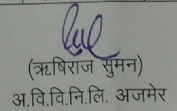 (ऋषिराज सुमन)
अ.वि.वि.नि.लि. अजमेर